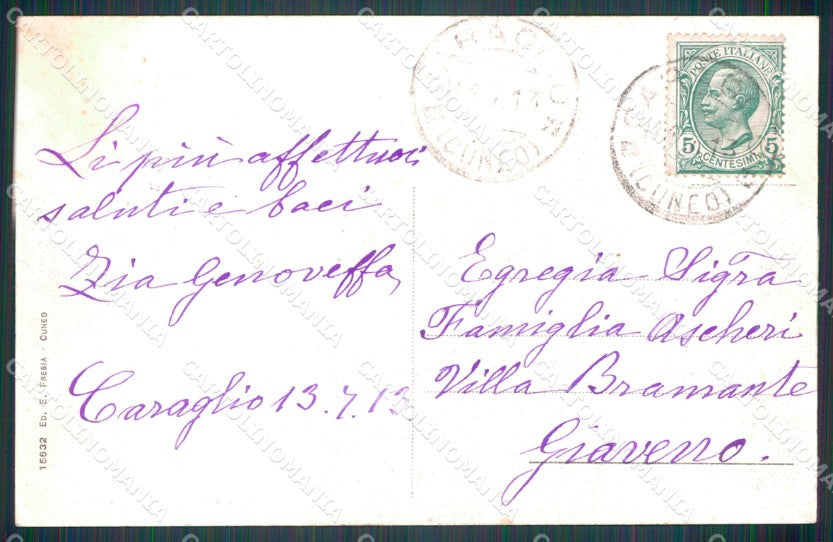 Li più affettuosi
saluti e baci
Zia Genoveffa
Caraglio 13.7.13
Egregia Sigra
Famiglia Ascheri
Villa Bramante
Giaveno.
15632 ED. E. FRESIA - CUNEO
CARAGLIO
(CUNEO)
POSTE ITALIANE
5 5
CENTESIMI
(CUNEO)
CARTOLINOMANIA